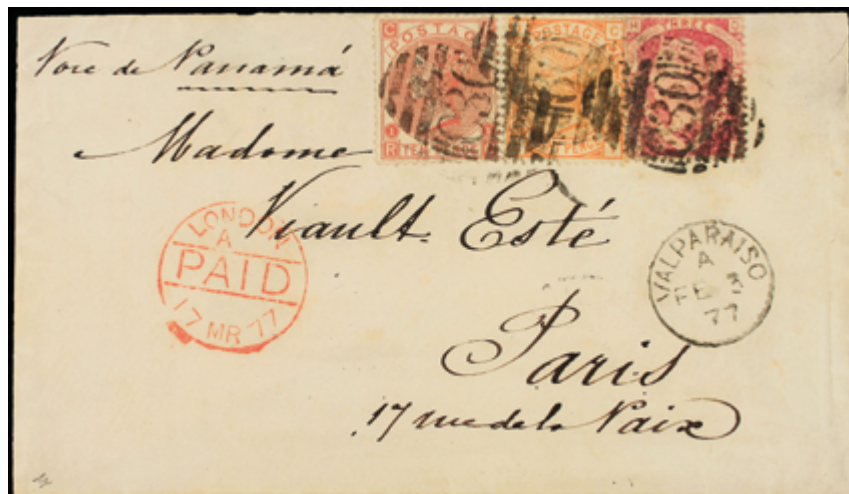 Voie de Panamá
POSTAGE
POSTAGE
THREE
C30
C30
Madame
Viault Esté
LONDON
A
PAID
17 MR 77
VALPARAISO
A
FE 3
77
Paris
17 rue de la Paix